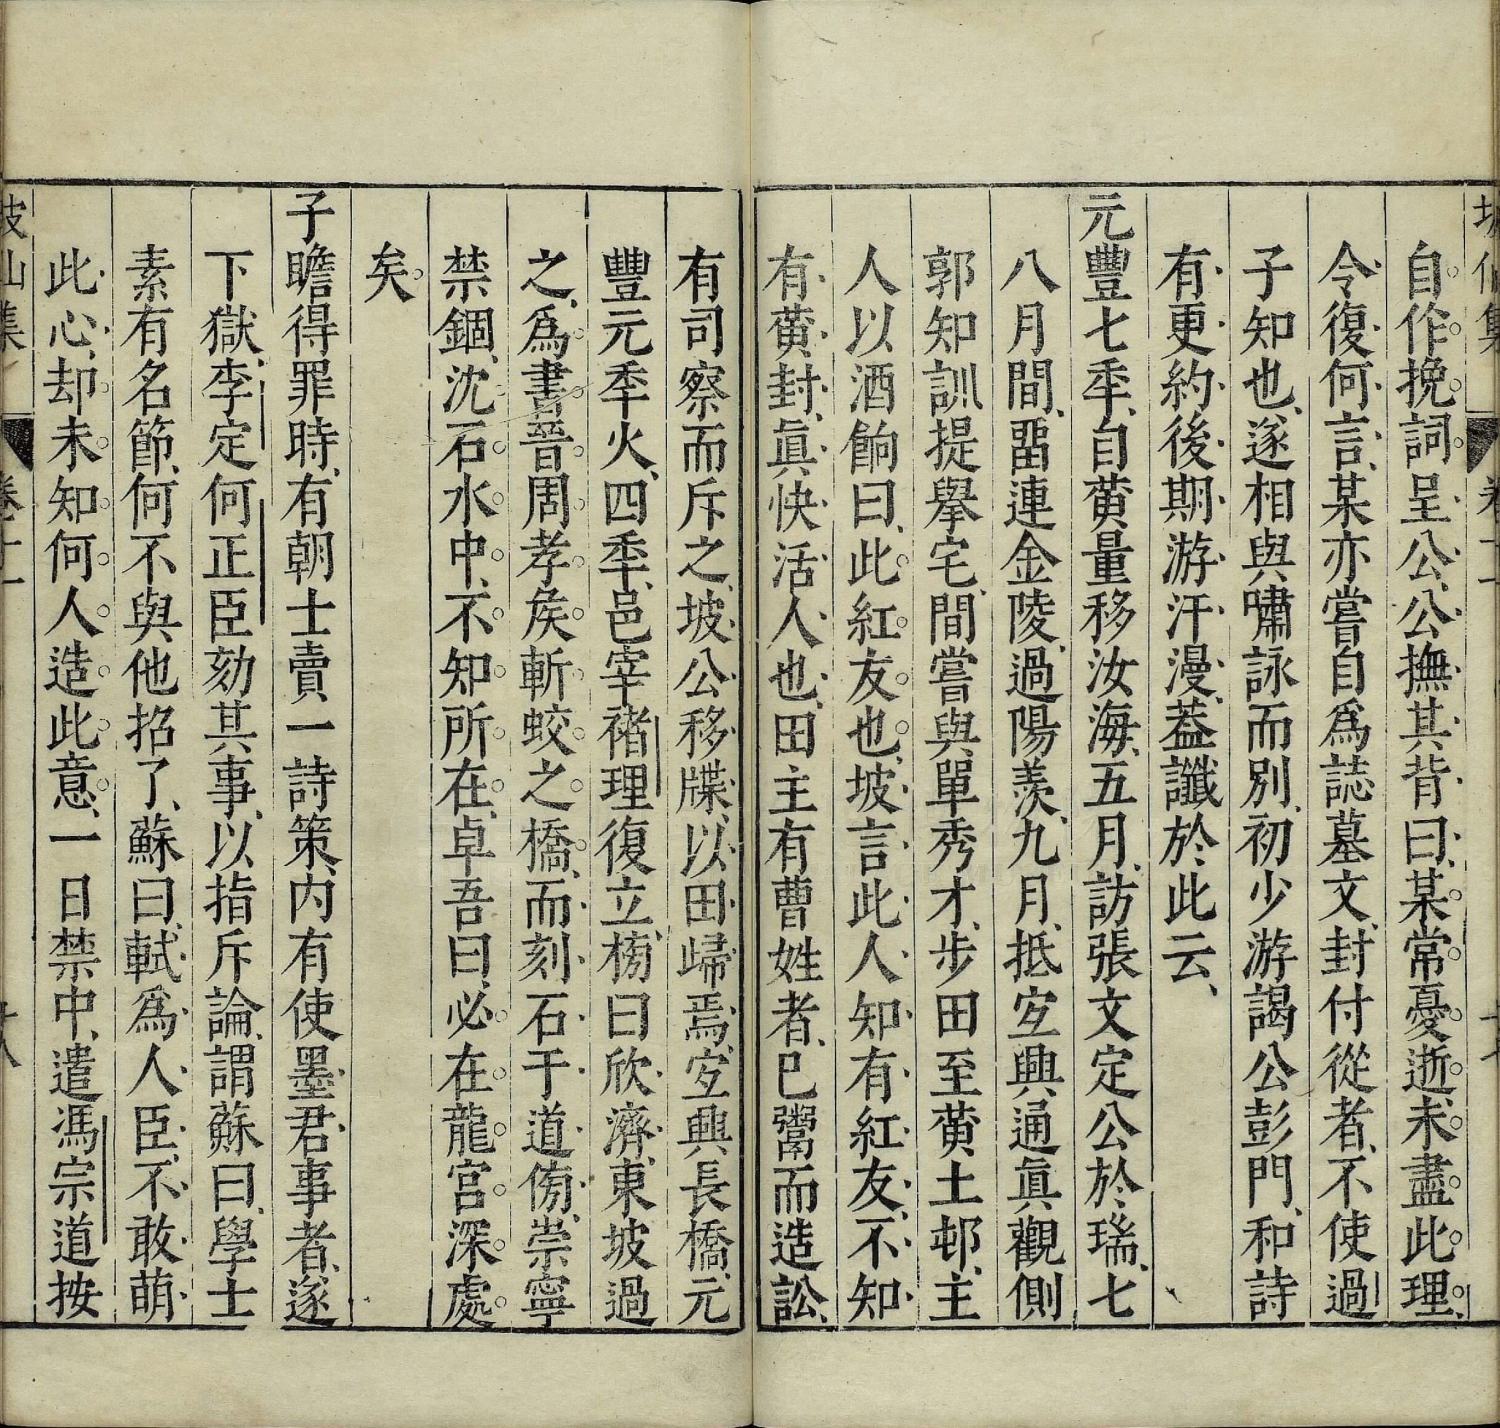 自作挽詞呈公、公撫其背曰、某常憂逝、未盡此理、
令復何言、某亦嘗自爲誌墓文、封付從者、不使過
子知也、遂相與嘯詠而別、初少游謁公彭門、和詩
有更約後期游汗漫、蓋讖於此云、
元豐七秊、自黃量移汝海、五月、訪張文定公於瑞、七
八月間、畱連金陵、過陽羨、九月、抵宐興通眞觀側
郭知訓提舉宅、間嘗與單秀才、步田至黃土邨、主
人以酒餉曰、此紅友也、坡言此人知有紅友、不知
有黃封、眞快活人也、田主有曹姓者、已鬻而造訟、
有司察而斥之、坡公移牒、以田歸焉、宐興長橋、元
豐元秊火、四秊、邑宰褚理復立、榜曰欣濟、東坡過
之、爲書晉周孝矦斬蛟之橋、而刻石于道侧、崇寧
禁錮、沈石水中、不知所在、卓吾曰、必在龍宫深處
矣。
子瞻得罪時、有朝士賣一詩策、内有使墨君事者、遂
下獄、李定何正臣劾其事、以指斥論、謂蘇曰、學士
素有名節、何不與他招了、蘇曰、軾爲人臣、不敢萌
此心、却未知何人造此意、一日禁中、遣馮宗道按
坡仙集 卷十一